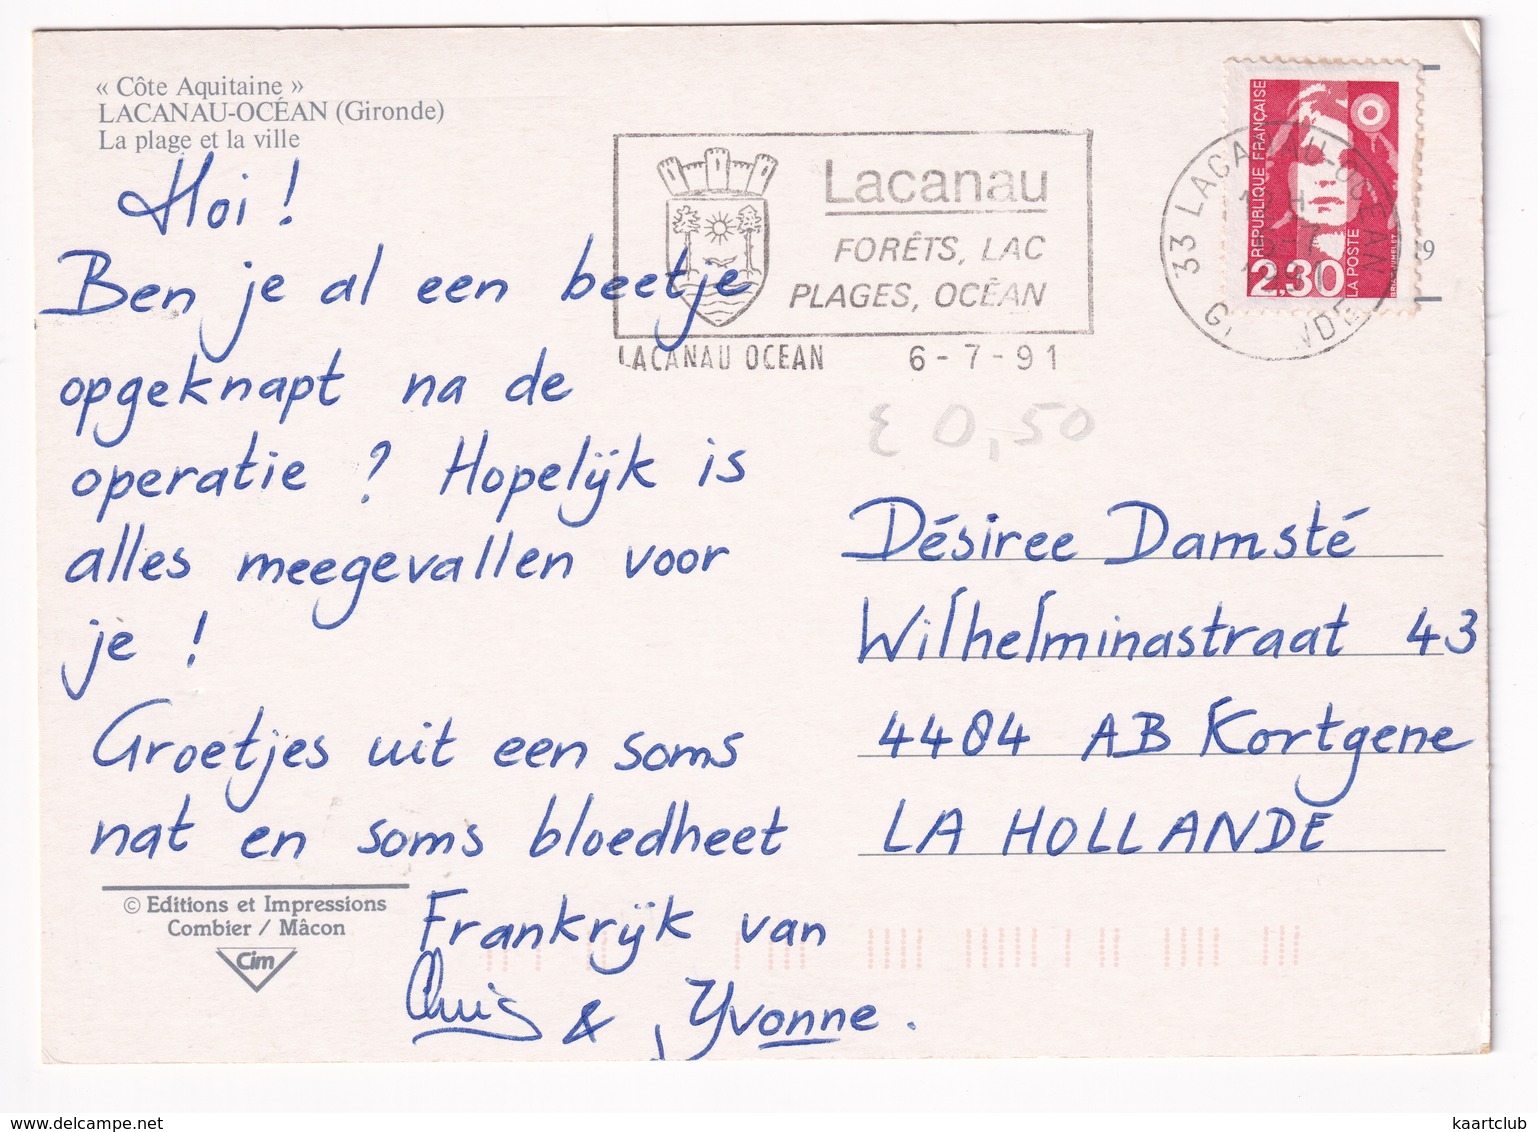 « Côte Aquitaine »
LACANAU-OCÉAN (Gironde)
La plage et la ville
Hoi !
Ben je al een beetje
opgeknapt na de
operatie ? Hopelijk is
alles meegevallen voor
je !
Groetjes uit een soms
nat en soms bloedheet
Frankrijk van
& Yvonne.
© Editions et Impressions
Combier / Mâcon
Cim
Lacanau
FORÊTS, LAC
PLAGES, OCÉAN
LACANAU OCEAN 6-7-91
REPUBLIQUE FRANÇAISE
2,30
LA POSTE
33 LACANAU-OCEAN
€ 0,50
Désiree Damsté
Wilhelminastraat 43
4484 AB Kortgene
LA HOLLANDE
www.delcampe.net
kaartclub